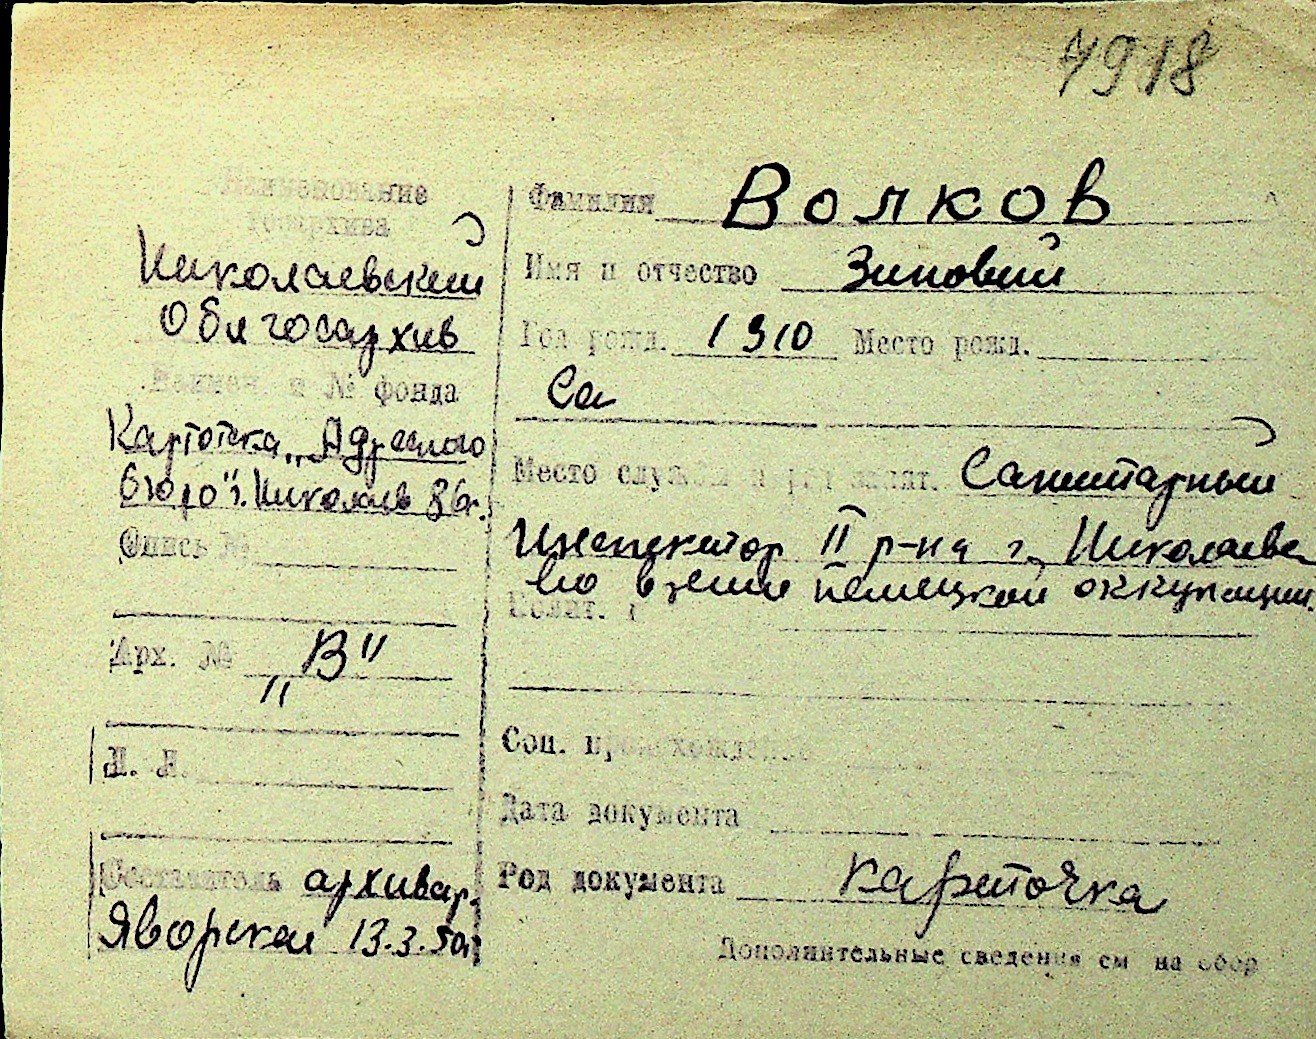 7918
Наименование
госархива
Николаевский
Облгосархив
Наимен. и № фонда
Картотека „Адресного
бюро" г. Николаев
Опись №
Арх. № „В"
Л. Л.
Составитель архивар.
Яворская 13.3.50г.
Фамилия Волков
Имя и отчество Зиновий
Год рожд. 1910 Место рожд.
Са
Место службы Санитарный
Инспектор II р-на г. Николаева
во время немецкой оккупации.
Соц. происхождение
Дата документа
Род документа карточка
Дополнительные сведения см на обор